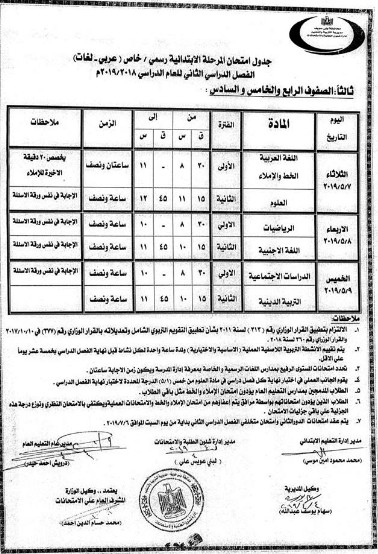 جدول امتحان المرحلة الابتدائية رسمى / خاص ( عربي - لغات )
الفصل الدراسي الثاني للعام الدراسي ٢٠١٩/٢٠١٨م
ثالثاً : الصفوف الرابع والخامس و السادس :
اليوم التاريخ المادة الفترة من إلى الزمن ملاحظات
ق س ق س
الثلاثاء ٢٠١٩/٥/٧ اللغة العربية الخط والإملاء الأولى ٣٠ ٨ - ١١ ساعتان ونصف يخصص ٢٠ دقيقة الاخيرة للإملاء
العلوم الثانية ١٥ ١١ ٤٥ ١٢ ساعة ونصف الإجابة في نفس ورقة الاسئلة
الاربعاء ٢٠١٩/٥/٨ الرياضيات الاولي ٣٠ ٨ - ١٠ ساعة ونصف الإجابة في نفس ورقة الاسئلة
اللغة الاجنبية الثانية ١٥ ١٠ ٤٥ ١١ ساعة ونصف الإجابة في نفس ورقة الاسئلة
الخميس ٢٠١٩/٥/٩ الدراسات الاجتماعية الاولي ٣٠ ٨ - ١٠ ساعة ونصف
التربية الدينية الثانية ١٥ ١٠ ٤٥ ١١ ساعة ونصف الإجابة في نفس ورقة الاسئلة
ملاحظات:
١. الالتزام بتطبيق القرار الوزاري رقم (٣١٣) لسنة ٢٠١١ بشأن تطبيق التقويم التربوي الشامل وتعديلاته بالقرار الوزاري رقم (٣٧٧) في ٢٠١٧/١٠/١٠
والقرار الوزاري ٣٦٠ لسنة ٢٠١٨.
٢. يتم تقييم الأنشطة التربوية اللاصفية العملية ( الاساسية والاختيارية ) ولمدة ساعة واحدة لكل نشاط قبل نهاية الفصل الدراسي بخمسة عشر يوما
على الاقل.
٣. تعدد امتحانات المستوى الرفيع بمدارس اللغات الرسمية و الخاصة بمعرفة إدارة المدرسة ويكون زمن الإجابة ساعتان.
٤. يقوم الجانب العملي في اختبار نهاية كل فصل دراسي في مادة العلوم من خمس (٥/١) الدرجة المحددة لاختبار نهاية الفصل الدراسي.
٥. الطلاب المدمجين بمدارس التعليم العام يؤدون امتحان الإملاء و الخط مثل باقي الطلاب.
٦. الطلاب الذين يؤدون امتحاناتهم بواسطة مرافق يتم إعفاؤهم من امتحان الإملاء والخط والامتحانات العملية ويكتفى بالامتحان النظري وتوزع درجة هذه
الجزئية على باقي جزئيات الامتحان.
٧. يتم عقد امتحانات الدورالثاني وامتحان متخلفي الفصل الدراسي الثاني بداية من يوم السبت الموافق ٢٠١٩/٧/٦.
مدير إدارة التعليم الابتدائي
محمد محمود امين موسي)
مدير إدارة شئون الطلبة والامتحانات
( لبني عويس علي )
مدير عام التعليم العام
( درويش أحمد حيدر )
وكيل المديرية
سهام يوسف عبدالله )
يعتمد ،، وكيل الوزارة
المشرف العام علي الامتحانات
( محمد حسام الدين احمد )